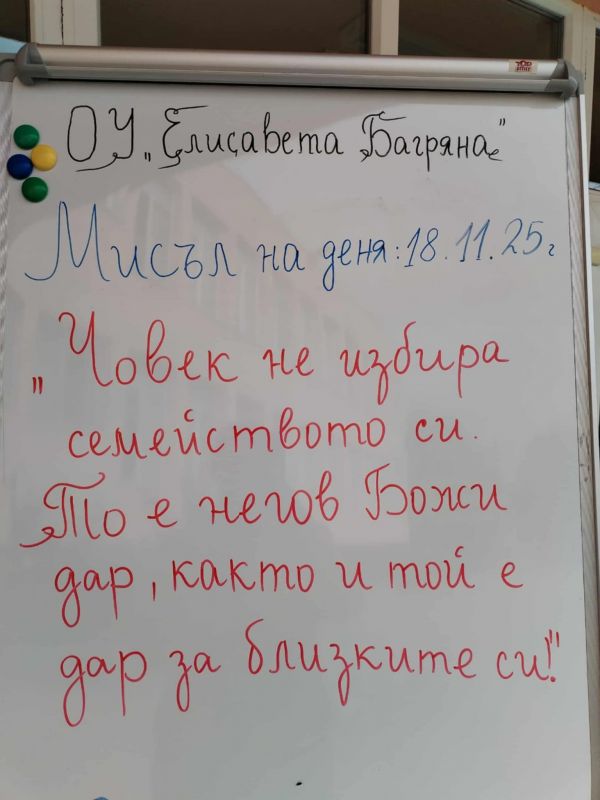 ОУ „Елисавета Багряна"
Мисъл на деня: 18.11.25г
„Човек не избира
семейството си.
То е негов Божи
дар, както и той е
дар за близките си!"